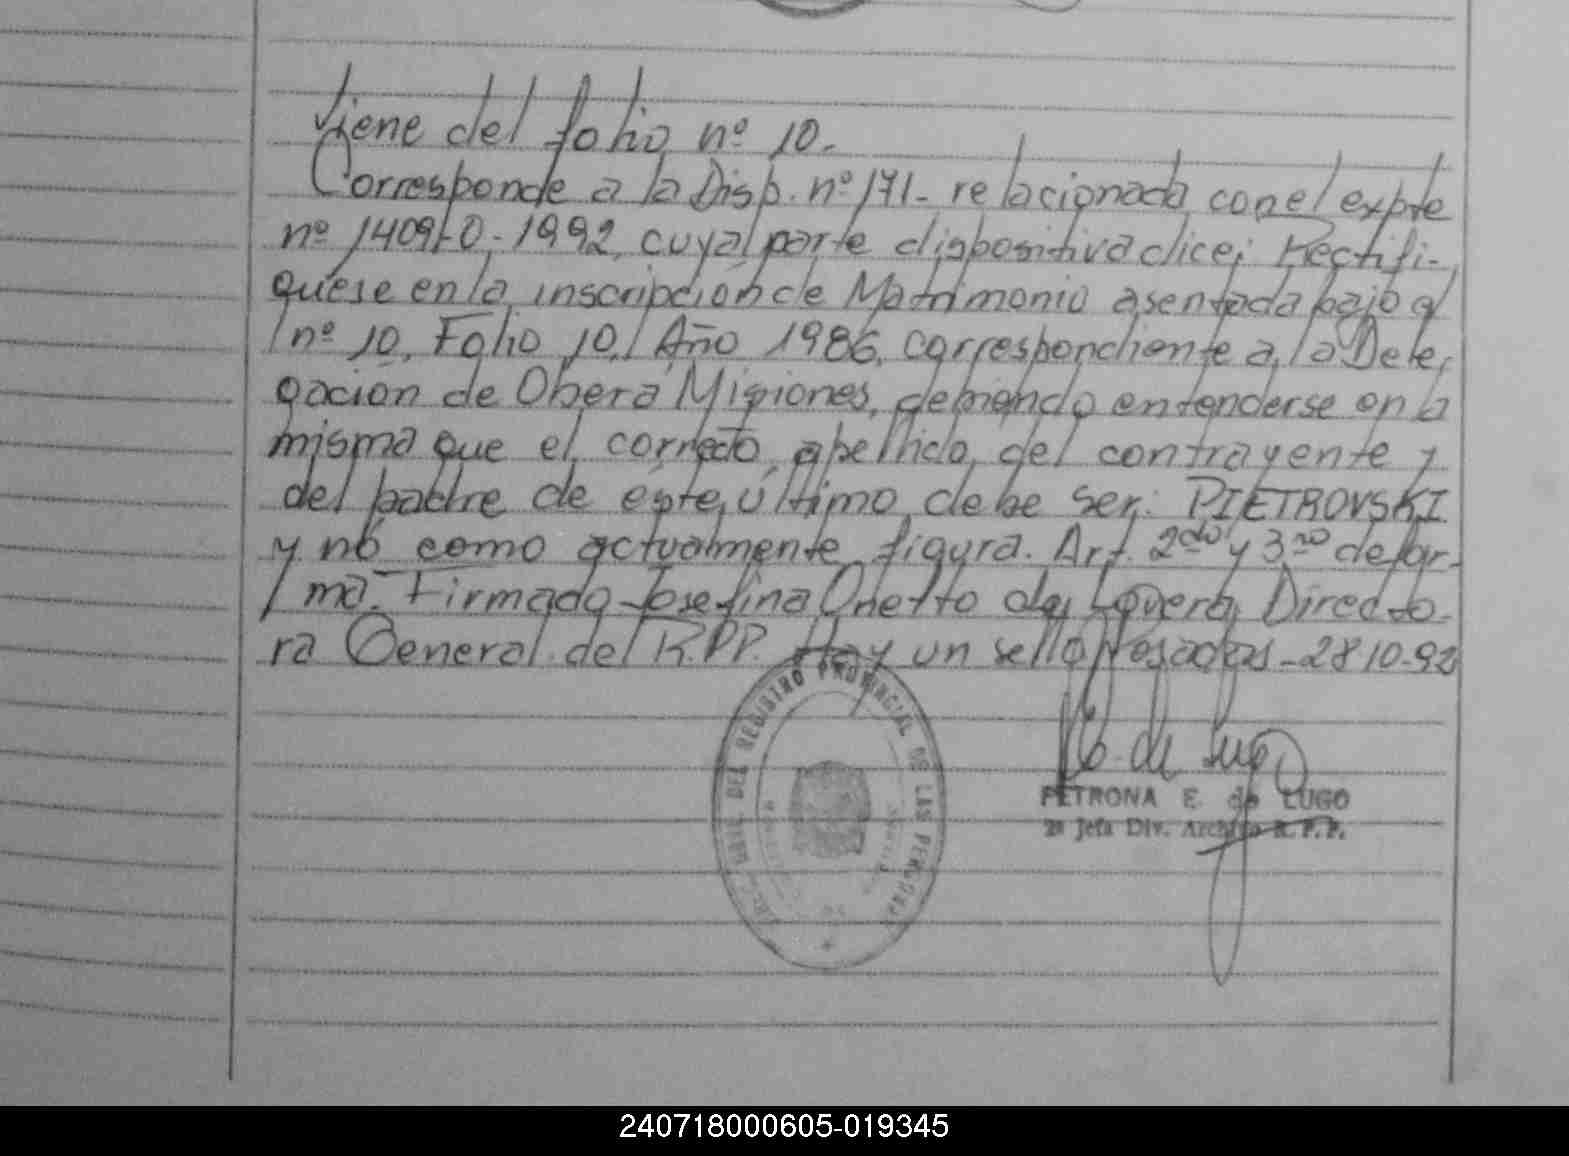 Viene del folio nº 10.
Corresponde a la Disp. nº 171- relacionada con el expte
nº 1409-O-1992, cuya parte dispositiva dice: Rectifi-
quese en la inscripción de Matrimonio asentada bajo el
nº 10, Folio 10, Año 1986, correspondiente a la Dele-
gación de Oberá Misiones, debiendo entenderse en la
misma que el correcto apellido del contrayente y
del padre de este último debe ser: PIETROVSKI
y no como actualmente figura. Art. 2do y 3ro de for-
ma. Firmado Josefina Onetto de Lovera, Directo-
ra General del R.P.P. Hay un sello Posadas-28-10-92
DEL REGISTRO PROVINCIAL DE LAS PERSONAS
PETRONA E. de LUGO
2ª Jefa Div. Archivo R.P.P.
240718000605-019345